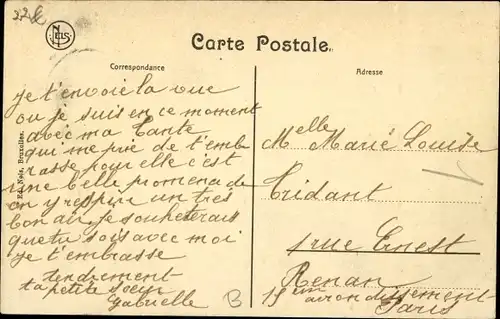 22
NELS
Carte Postale.
Correspondance
Adresse
Ed. Nels, Bruxelles.
je t'envoie la vue
ou je suis en ce moment
avec ma tante
qui me prie de t'emb
rasse pour elle c'est
une belle promena de
on y respire un tres
bon air, je souheterais
que tu sois avec moi
je t'embrasse
tendrement
ta petite soeur
Gabrielle
Melle Marie Louise
Tridant
1 rue Ernest
Renan
15 eme airondissement
Paris
B